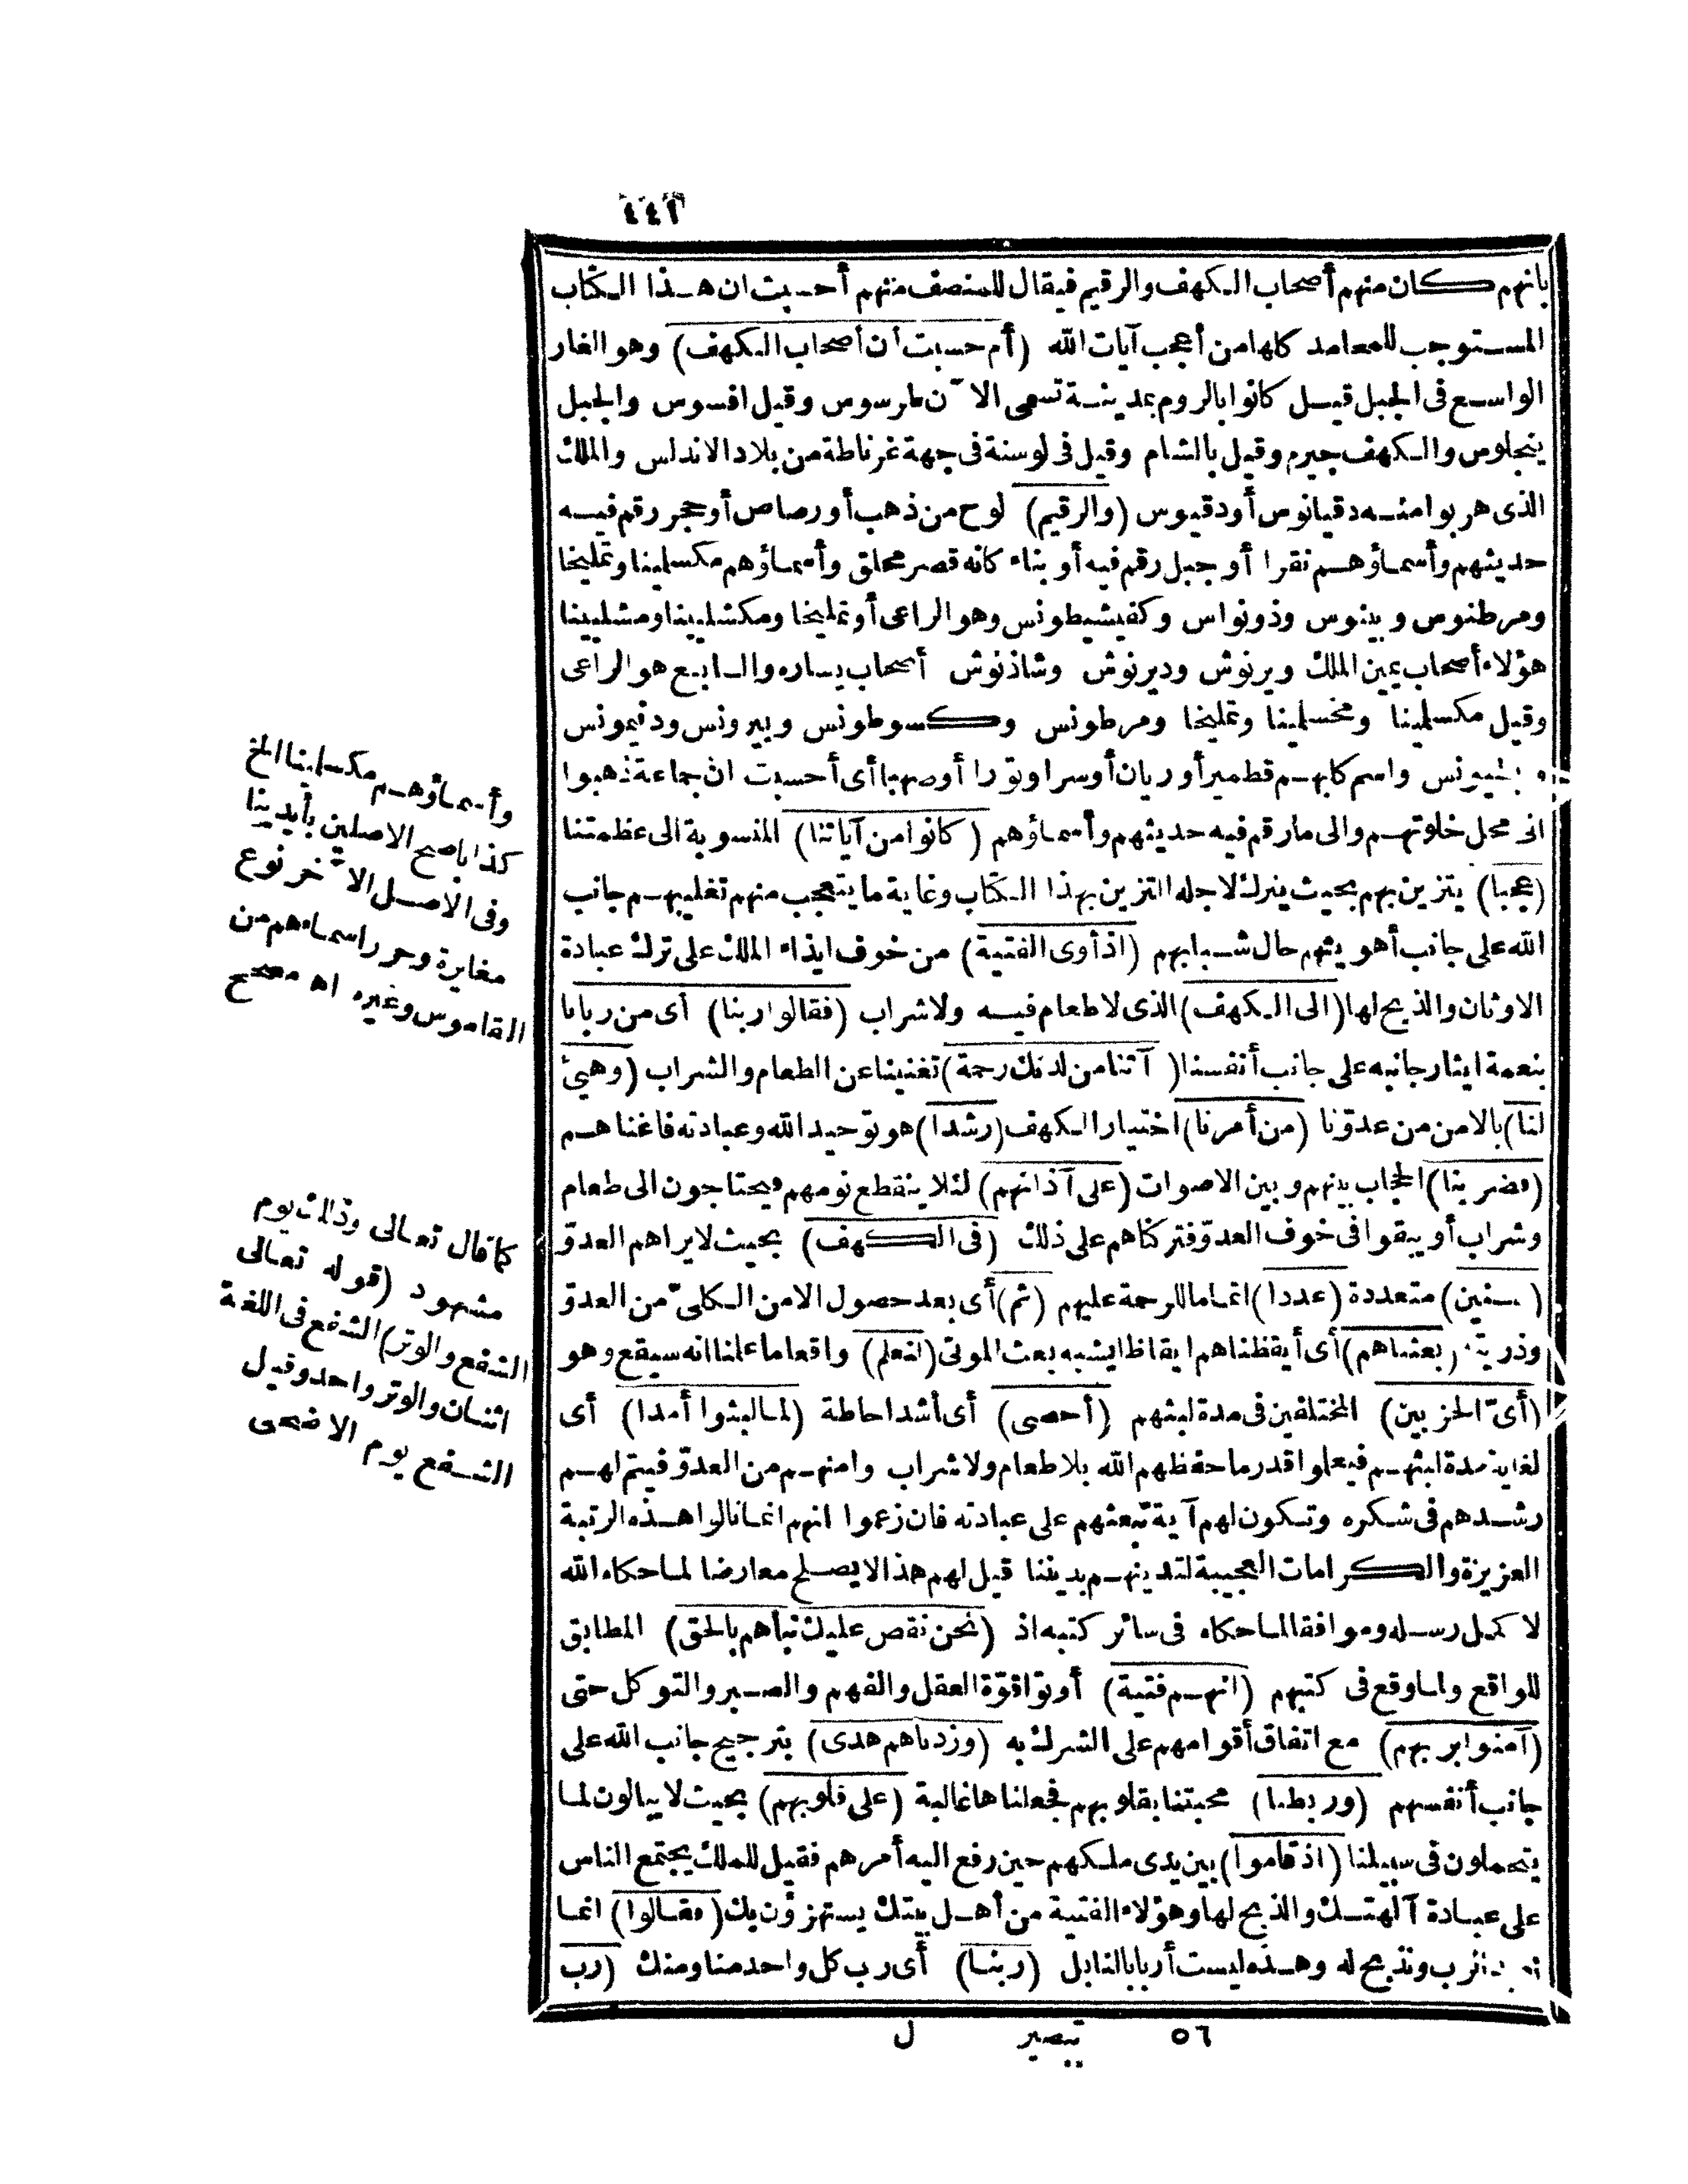 ٤٤١
بانهم كان منهم أصحاب الكهف والرقيم فيقال للمنصف منهم أحسبت ان هذا الكتاب
المستوجب للمعامد كلها من أعجب آيات الله (أم حسبت أن أصحاب الكهف) وهو الغار
الواسع فى الجبل قيل كانوا بالروم بمدينة تسمى الآن طرسوس وقيل افسوس والجبل
ينجلوس والكهف جيرم وقيل بالشام وقيل فى لوسنة فى جهة غرناطة من بلاد الاندلس والملك
الذى هربوا منه دقيانوس أو دقيوس (والرقيم) لوح من ذهب أو رصاص أو حجر رقم فيه
حديثهم وأسماؤهم نقرا أو جبل رقم فيه أو بناء كانه قصر محلق وأسماؤهم مكسلمينا وتمليخا
ومرطنوس وبينوس وذونواس وكفيشيطونس وهو الراعى أو تمليخا ومكشلينا ومشلينا
هؤلاء أصحاب يمين الملك ويرنوش وديرنوش وشاذنوش أصحاب يساره والسابع هو الراعى
وقيل مكسلمينا ومخسلمينا وتمليخا ومرطونس وكسوطونس وبيرونس ودنيمونس
واسم كلبهم قطمير أو ريان أو سرا وتورا أو صهبا أى أحسبت ان جماعة ذهبوا
الى محل خلوتهم والى ما رقم فيه حديثهم وأسماؤهم (كانوا من آياتنا) المنسوبة الى عظمتنا
(عجبا) يتزين بهم بحيث يترك لاجله التزين بهذا الكتاب وغاية ما يتعجب منهم تغليبهم جانب
الله على جانب أهويتهم حال شبابهم (اذ أوى الفتية) من خوف ايذاء الملك على ترك عبادة
الاوثان والذبح لها (الى الكهف) الذى لا طعام فيه ولا شراب (فقالوا ربنا) أى من ربانا
بنعمة ايثار جانبه على جانب أنفسنا (آتنا من لدنك رحمة) تغنينا عن الطعام والشراب (وهيئ
لنا) بالامن من عدونا (من أمرنا) اختيار الكهف (رشدا) هو توحيد الله وعبادته فاغناهم
(فضربنا) الحجاب بينهم وبين الاصوات (على آذانهم) لئلا ينقطع نومهم فيحتاجون الى طعام
وشراب أو يبقوا فى خوف العدوّ فتركناهم على ذلك (فى الكهف) بحيث لا يراهم العدوّ
(سنين) متعددة (عددا) اتماما للرحمة عليهم (ثم) أى بعد حصول الامن الكلىّ من العدوّ
وذريته (بعثناهم) أى أيقظناهم ايقاظا يشبه بعث الموتى (لنعلم) واقعا ما علمنا انه سيقع وهو
(أىّ الحزبين) المختلفين فى مدة لبثهم (أحصى) أى أشد احاطة (لما لبثوا أمدا) أى
لغاية مدة لبثهم فيعلموا قدر ما حفظهم الله بلا طعام ولا شراب وامنهم من العدوّ فيتم لهم
رشدهم فى شكره وتكون لهم آية تبعثهم على عبادته فان زعموا انهم انما نالوا هذه الرتبة
العزيزة والكرامات العجيبة لتدينهم بديننا قيل لهم هذا لا يصلح معارضا لما حكاه الله
لاكمل رسله وموافقا لما حكاه فى سائر كتبه اذ (نحن نقص عليك نبأهم بالحق) المطابق
للواقع ولما وقع فى كتبهم (انهم فتية) أوتوا قوّة العقل والفهم والصبر والتوكل حتى
(آمنوا بربهم) مع اتفاق أقوامهم على الشرك به (وزدناهم هدى) بترجيح جانب الله على
جانب أنفسهم (وربطنا) محبتنا بقلوبهم فجعلناها غالبة (على قلوبهم) بحيث لا يبالون لما
يتحملون فى سبيلنا (اذ قاموا) بين يدى ملكهم حين رفع اليه أمرهم فقيل للملك يجتمع الناس
على عبادة آلهتك والذبح لها وهؤلاء الفتية من أهل بيتك يستهزؤن بك (فقالوا) انما
الرب ونذبح له وهذه ليست أربابا لنا بل (ربنا) أى رب كل واحد منا ومنك (رب
٥٦ تبصير ل
وأسماؤهم مكسلمينا الخ
كذا باصح الاصلين بأيدينا
وفى الاصل الآخر نوع
مغايرة وحرر اسماءهم من
القاموس وغيره اه مصحح
كما قال تعالى وذلك يوم
مشهود (قوله تعالى
الشفع والوتر) الشفع فى اللغة
اثنان والوتر واحد وقيل
الشفع يوم الاضحى